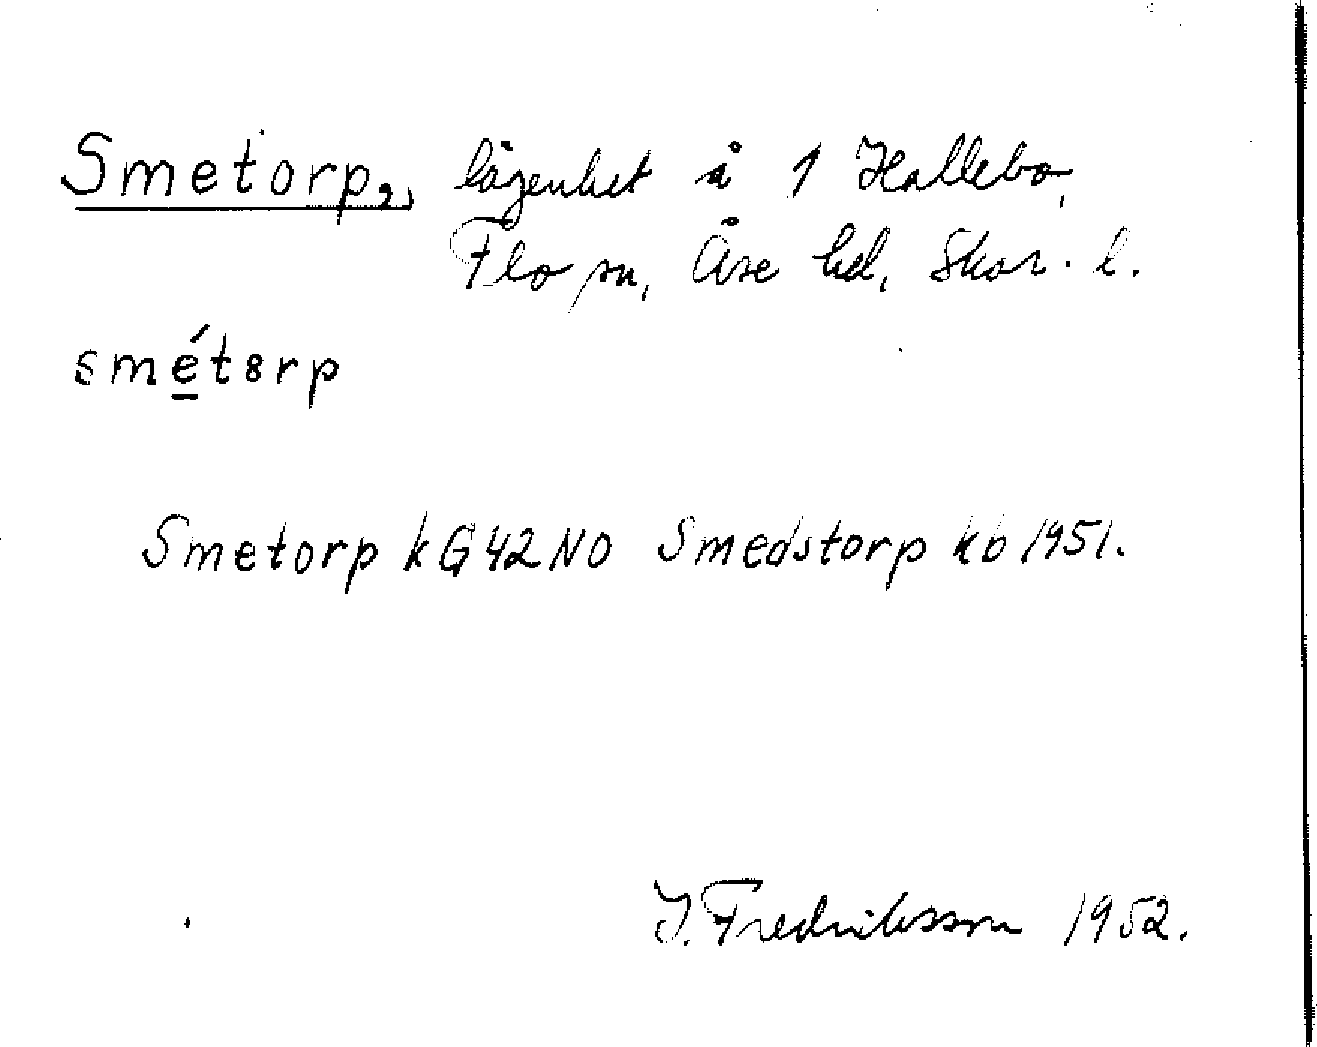 Smetorp,, lägenhet å 1 Hallebo,
Flo sn, Åse hd, Skar. l.
smét8rp
Smetorp kG42NO Smedstorp kb 1951.
J. Fredriksson 1952.